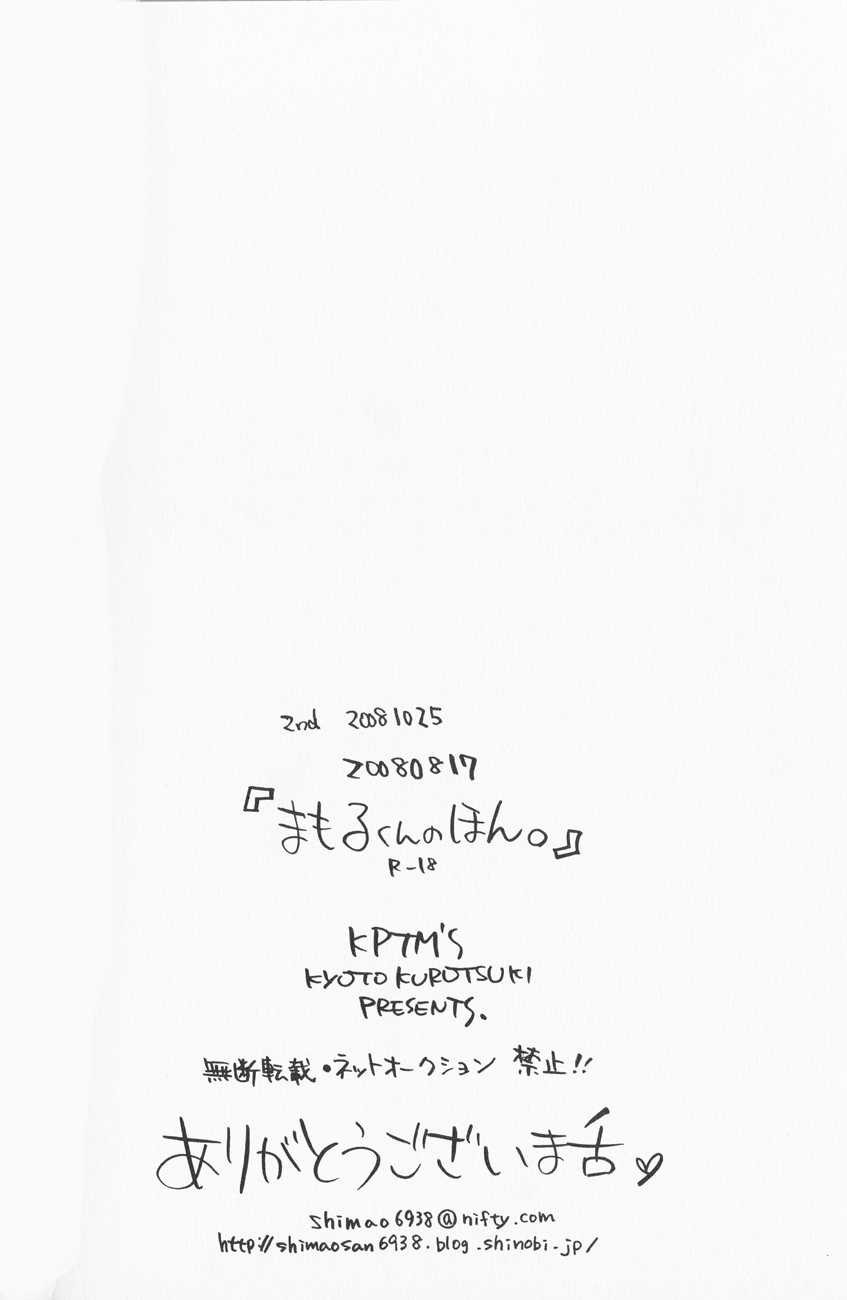 2nd 20081025
20080817
『まもるくんのほん。』
R-18
KPTM'S
KYOTO KUROTSUKI
PRESENTS.
無断転載・ネットオークション 禁止!!
ありがとうございま舌♡
shimao6938@nifty.com
http://shimaosan6938.blog.shinobi.jp/